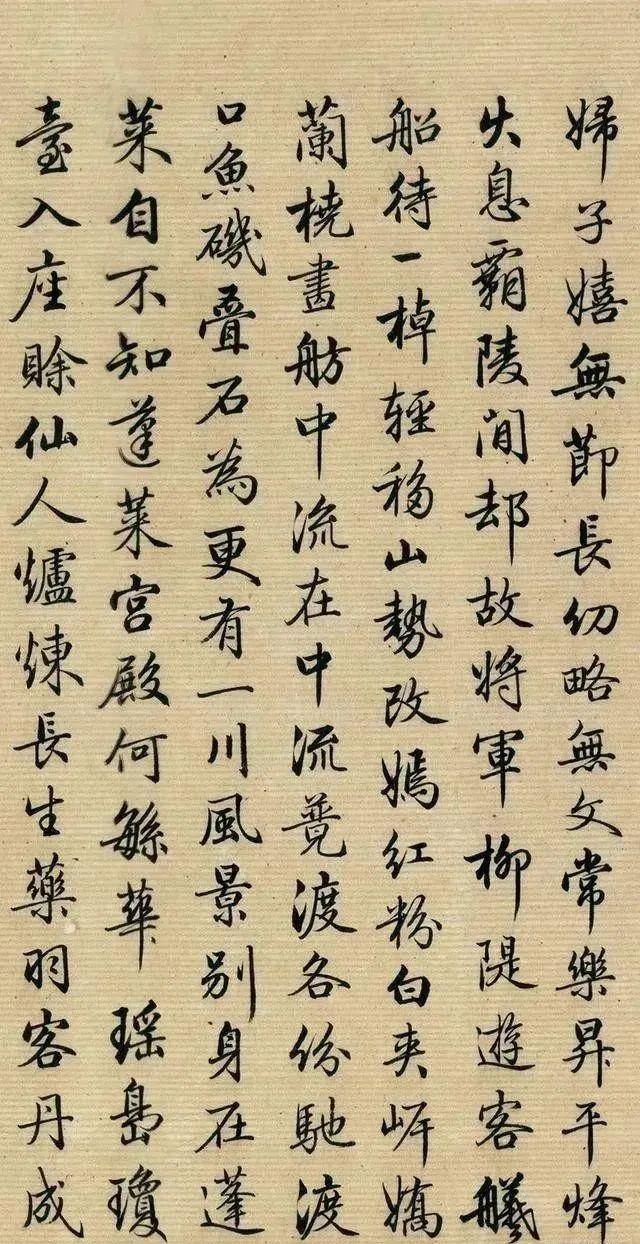 婦子嬉無節長幼略無文常樂昇平烽
火息霸陵閒却故將軍柳隄遊客艤
船待一棹輕移山勢改嫣紅粉白夾岸嬌
蘭橈畫舫中流在中流競渡各份馳渡
口魚磯疊石為更有一川風景别身在蓬
萊自不知蓬萊宮殿何緐華瑶島瓊
臺入座賒仙人爐煉長生藥羽客丹成